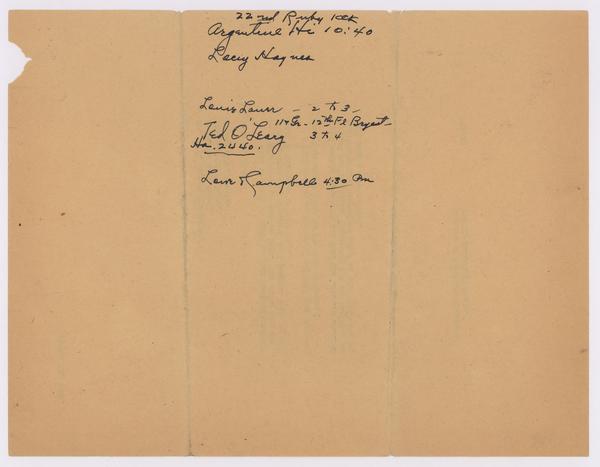 22nd Ruby KCK
Argentine Hi 10:40
Lacy Haynes
Louis Lower - 2 to 3 -
11th Gr - 12th Fl Bryant -
Ted O'Leary 3 to 4
Ha. 2440.
Campbell 4:30 Pm